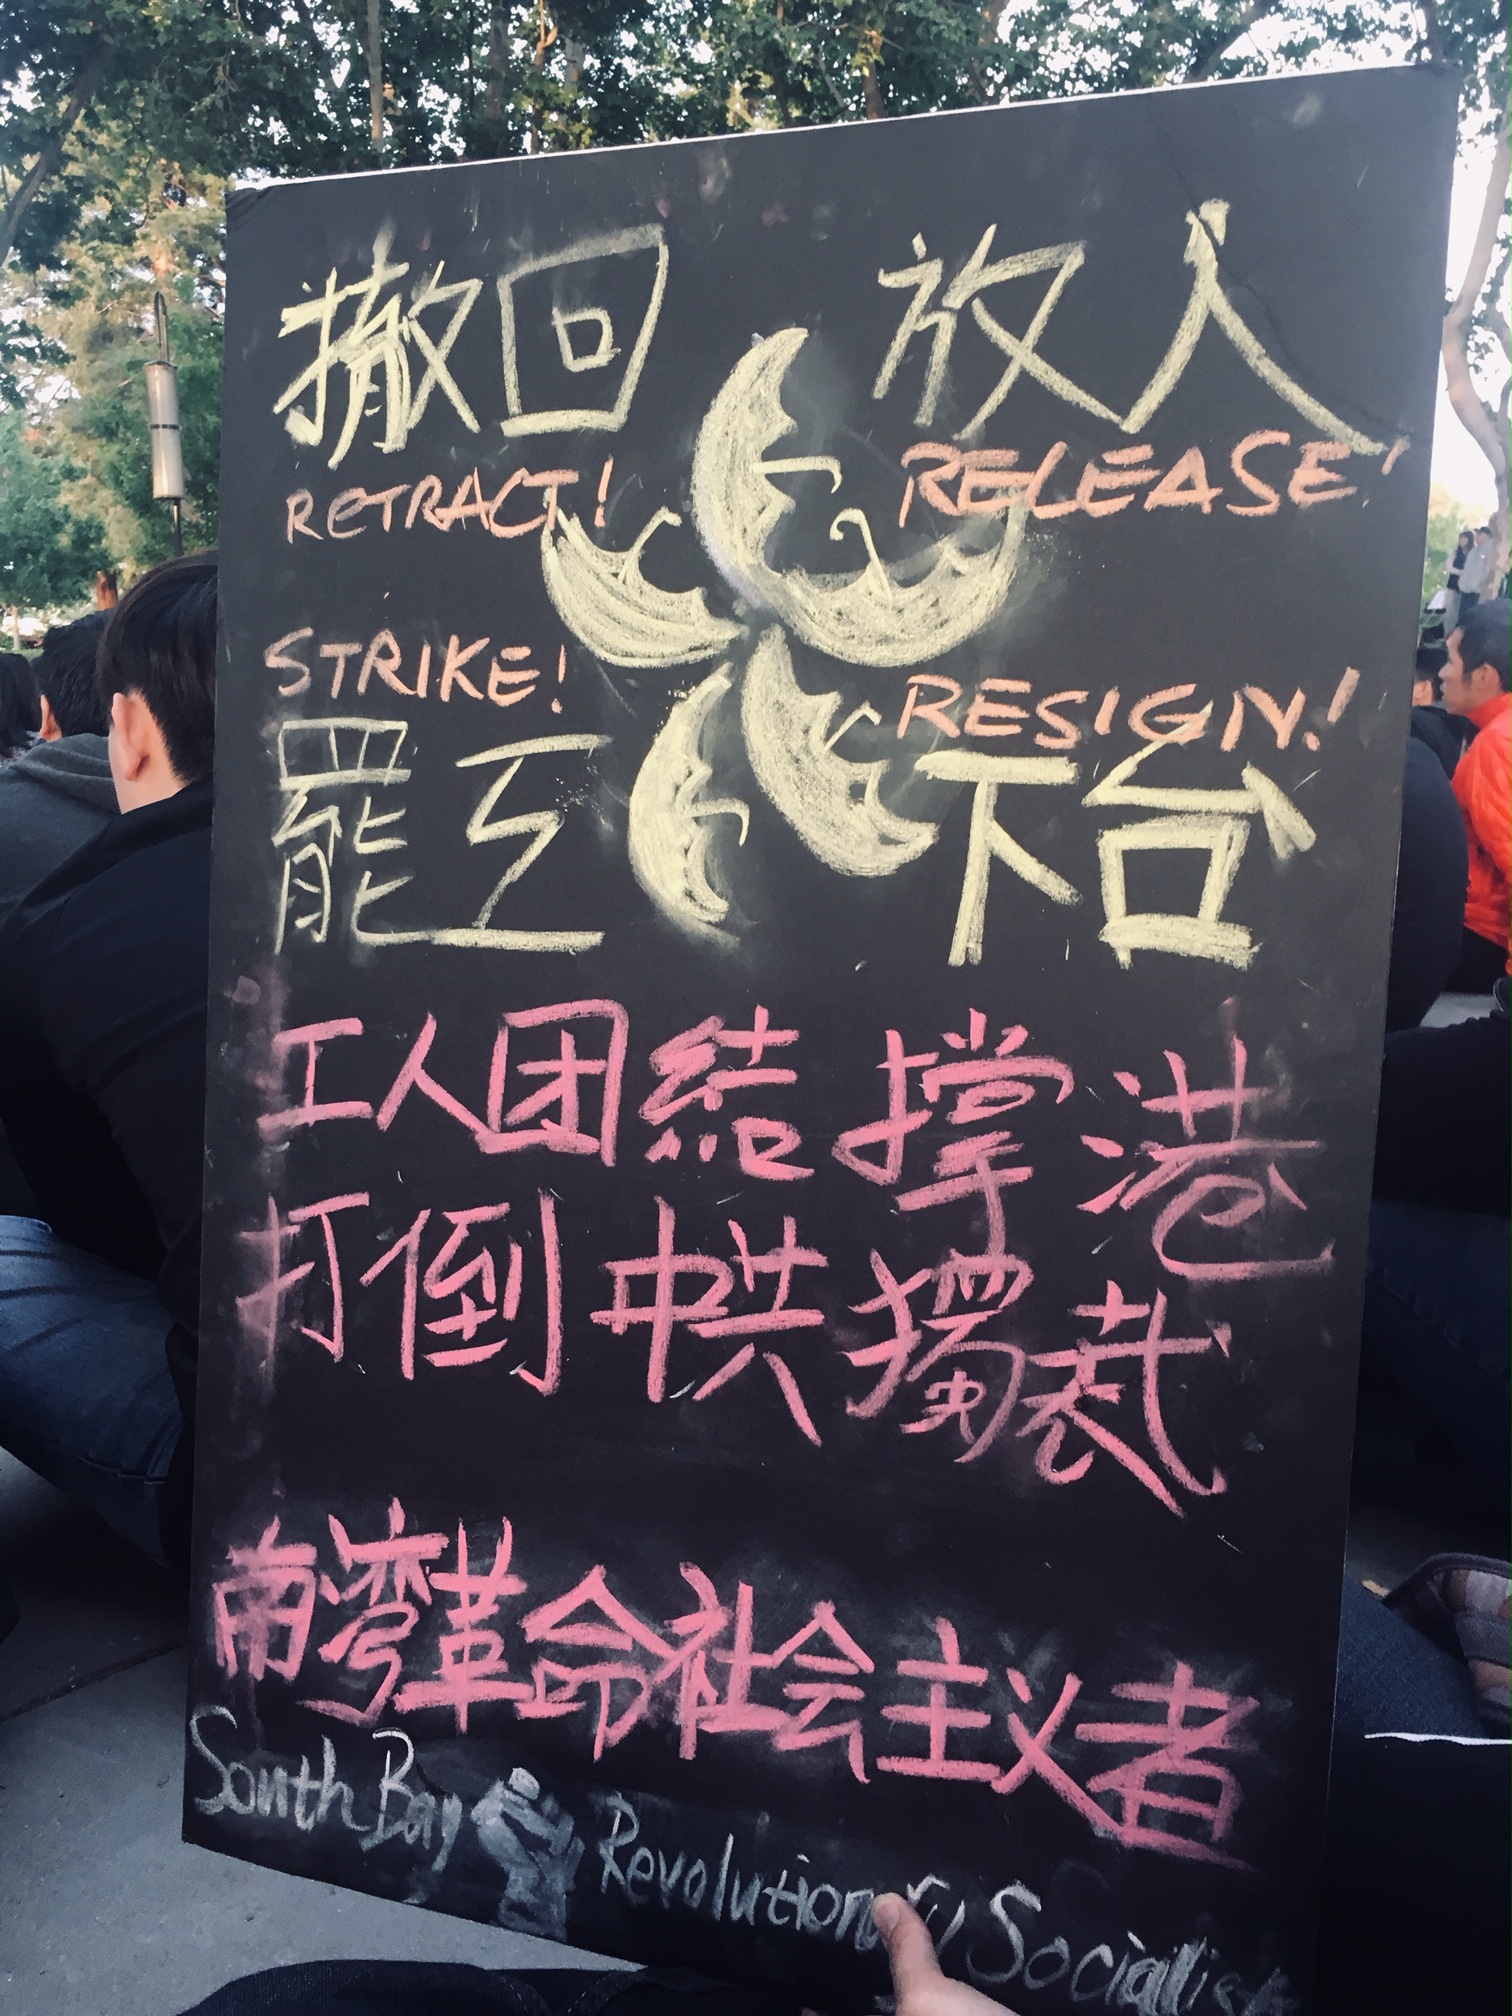 撤回 放人
RETRACT! RELEASE!
STRIKE! RESIGN!
罷工 下台
工人团结撑港
打倒中共獨裁
南湾革命社会主义者
South Bay Revolutionary Socialists